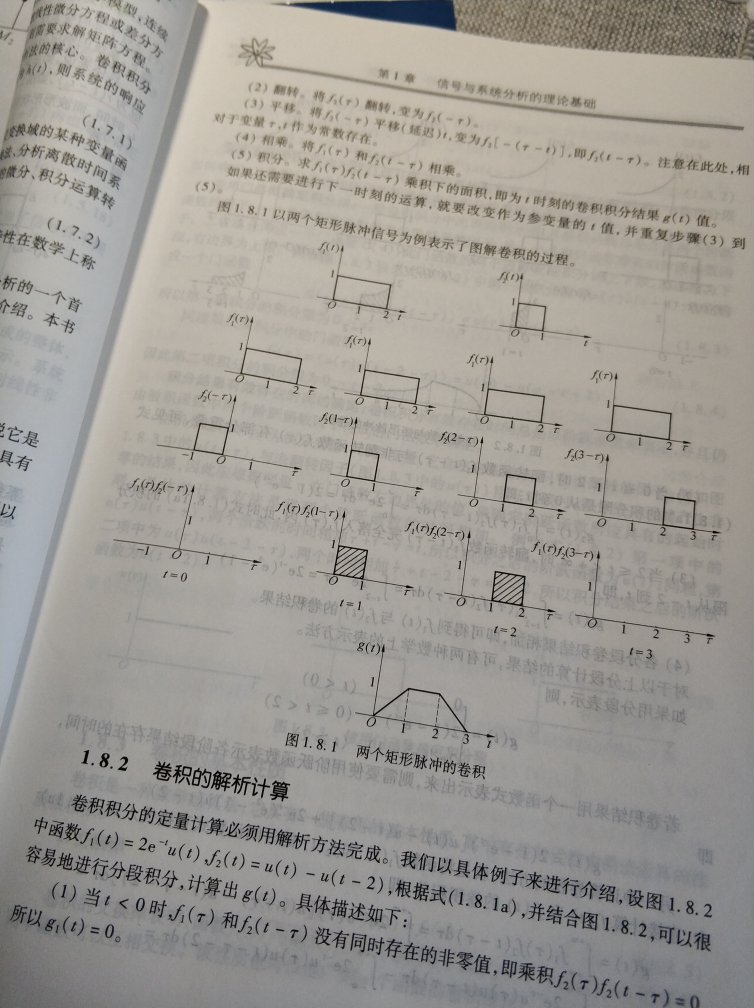 模型,连续
线性微分方程或差分方
需要求解矩阵方程。
法的核心。卷积积分
h(t),则系统的响应
(1.7.1)
变换域的某种变量函
法、分析离散时间系
微分、积分运算转
(1.7.2)
性在数学上称
析的一个首
介绍。本书
说它是
具有
以
第1章 信号与系统分析的理论基础
(2) 翻转。将f₂(τ) 翻转,变为f₂(-τ)。
(3) 平移。将f₂(-τ) 平移(延迟)t,变为f₂[-(τ-t)],即f₂(t-τ)。注意在此处,相
对于变量τ,t作为常数存在。
(4) 相乘。将f₁(τ) 和f₂(t-τ) 相乘。
(5) 积分。求f₁(τ)f₂(t-τ) 乘积下的面积,即为t时刻的卷积积分结果g(t) 值。
如果还需要进行下一时刻的运算,就要改变作为参变量的t值,并重复步骤(3) 到
(5)。
图1.8.1以两个矩形脉冲信号为例表示了图解卷积的过程。
f₁(t) 1 O 1 2 t
f₂(t) 1 O 1 t
f₁(τ) 1 O 1 2 τ
f₁(τ) 1 O 1 2 τ
f₁(τ) 1 O 1 2 τ
f₁(τ) 1 O 1 2 τ
f₂(-τ) 1 -1 O 1 τ
f₂(1-τ) 1 O 1 τ
f₂(2-τ) 1 O 1 2 τ
f₂(3-τ) 1 O 1 2 3 τ
f₁(τ)f₂(-τ) 1 -1 O 1 τ
f₁(τ)f₂(1-τ) 1 O 1 τ
f₁(τ)f₂(2-τ) 1 O 1 2 τ
f₁(τ)f₂(3-τ) 1 O 1 2 3 τ
t=0
t=1
t=2
t=3
g(t) 1 O 1 2 3 t
图1.8.1 两个矩形脉冲的卷积
1.8.2 卷积的解析计算
卷积积分的定量计算必须用解析方法完成。我们以具体例子来进行介绍,设图1.8.2
中函数f₁(t)=2e⁻ᵗu(t),f₂(t)=u(t)-u(t-2),根据式(1.8.1a),并结合图1.8.2,可以很
容易地进行分段积分,计算出g(t)。具体描述如下:
(1) 当t<0时,f₁(τ) 和f₂(t-τ) 没有同时存在的非零值,即乘积f₂(τ)f₂(t-τ)=0
所以g₁(t)=0。